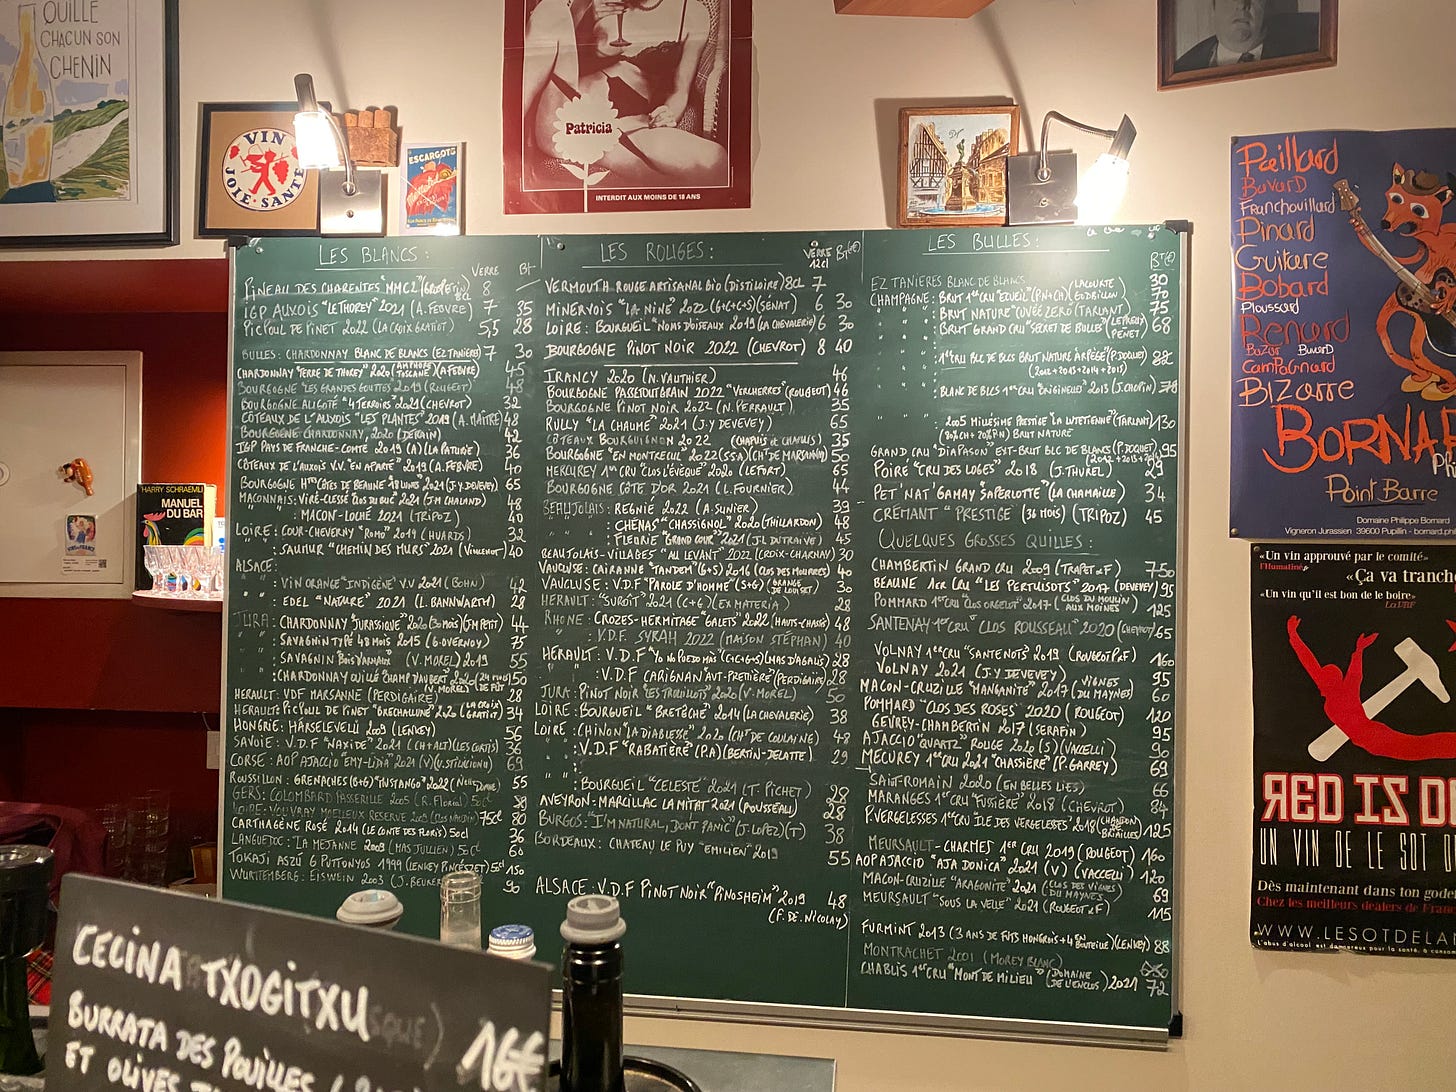 OUILLE
CHACUN SON
CHENIN
VIN
JOIE·SANTÉ
ESCARGOTS
Patricia
INTERDIT AUX MOINS DE 18 ANS
HARRY SCHRAEMLI
MANUEL
DU BAR
LES BLANCS :
VERRE
Bt
PINEAU DES CHARENTES "MMC2" 8cl 8
IGP AUXOIS "LETHOREY" 2021 (A. FEBVRE) 7 35
PICPOUL DE PINET 2022 (LA CROIX GRATIOT) 5,5 28
BULLES : CHARDONNAY BLANC DE BLANCS (EZ TANIÈRES) 7 30
CHARDONNAY "TERRE DE THOREY" 2020 (AMPHORE TOSCANE) (A. FEBVRE) 45
BOURGOGNE "LES GRANDES GOUTTES" 2019 (ROUGEOT) 48
BOURGOGNE ALIGOTÉ "4 TERROIRS" 2021 (CHEVROT) 32
CÔTEAUX DE L'AUXOIS "LES PLANTES" 2019 (A. MAÎTRE) 48
BOURGOGNE CHARDONNAY, 2020 (DERAIN) 42
IGP PAYS DE FRANCHE-COMTÉ 2019 (A) (LA PATURIE) 36
CÔTEAUX DE L'AUXOIS V.V. "EN APARTÉ" 2019 (A. FEBVRE) 40
BOURGOGNE Htes CÔTES DE BEAUNE "18 LUNES" 2021 (J-Y DEVEVEY) 65
MACONNAIS : VIRÉ-CLESSÉ "CLOS DU BUC" 2021 (J-M CHALAND) 48
" " : MACON-LOCHÉ 2021 (TRIPOZ) 40
LOIRE : COUR-CHEVERNY "ROMO" 2019 (HUARDS) 32
: SAUMUR "CHEMIN DES MURS" 2021 40
ALSACE :
: VIN ORANGE "INDIGÈNE" V.V 2021 (BOHN) 42
" " : EDEL "NATURE" 2021 (L. BANNWARTH) 28
JURA : CHARDONNAY "JURASSIQUE" 2020 (30 MOIS) (J-M PETIT) 44
" " : SAVAGNIN TYPÉ 48 MOIS 2015 (G. OVERNOY) 75
" " : SAVAGNIN (V. MOREL) 2019 55
" " : CHARDONNAY OUILLÉ "CHAMP D'AUBERT" 2020 (24 MOIS DE FÛT) (V. MOREL) 50
HERAULT : VDF MARSANNE (PERDIGAIRE) 28
HERAULT : PICPOUL DE PINET "BRÉCHALLUNE" 2020 (LA CROIX GRATIOT) 34
HONGRIE : HÁRSLEVELÜ 2009 (LENKEY) 56
SAVOIE : V.D.F "NAXIDE" 2021 (CH+ALT) (LES CORTIS) 36
CORSE : AOP AJACCIO "EMY-LIDIA" 2021 (V) 69
ROUSSILLON : GRENACHES (B+G) "TUSTANGO" 2022 55
GERS : COLOMBARD PASSERILLÉ 2005 (R. FLORIAL) 50cl 80
LOIRE : VOUVRAY MOELLEUX RESERVE 2009 75cl 80
CARTHAGÈNE ROSÉ 2014 (LE CONTE DES FLORIS) 50cl 36
LANGUEDOC : "LA MEJANNE" 2009 (MAS JULLIEN) 50cl 60
TOKAJI ASZÚ 6 PUTTONYOS 1999 (LENKEY PINCÉSZET) 50cl 150
WURTEMBERG : EISWEIN 2003 (J. BEURER) 90
LES ROUGES :
VERRE 12cl
Bt(€)
VERMOUTH ROUGE ARTISANAL BIO (DISTILOIRE) 8cl 7
MINERVOIS "LA NINE" 2022 (G+C+S) (SÉNAT) 6 30
LOIRE : BOURGUEIL "NOMS D'OISEAUX" 2019 (LA CHEVALERIE) 6 30
BOURGOGNE PINOT NOIR 2022 (CHEVROT) 8 40
IRANCY 2020 (N. VAUTHIER) 46
BOURGOGNE PASSETOUTGRAIN 2022 "VERCHERRES" (ROUGEOT) 46
BOURGOGNE PINOT NOIR 2022 (N. PERRAULT) 35
RULLY "LA CHAUME" 2021 (J.Y DEVEVEY) 65
CÔTEAUX BOURGUIGNON 2022 (CHAPUIS et CHAPUIS) 35
BOURGOGNE "EN MONTRECUL" 2022 (SSA) (CHT DE MARSANNAY) 50
MERCUREY 1er CRU "CLOS L'ÉVÊQUE" 2020 (LEFORT) 65
BOURGOGNE CÔTE D'OR 2021 (L. FOURNIER) 44
BEAUJOLAIS : REGNIÉ 2022 (A. SUNIER) 39
" " : CHÉNAS "CHASSIGNOL" 2020 (THILLARDON) 48
" : FLEURIE "GRAND COUR" 2021 (J-L DUTRAIVE) 45
BEAUJOLAIS-VILLAGES "AU LEVANT" 2022 (CROIX-CHARNAY) 30
VAUCLUSE : CAIRANNE "TANDEM" (G+S) 2016 (CLOS DES MOURRES) 40
VAUCLUSE : V.D.F "PAROLE D'HOMME" (S+G) 30
HERAULT : "SUROÎT" 2021 (C+G) (EX MATERIA) 28
RHÔNE : CROZES-HERMITAGE "GALETS" 2022 (HAUTS-CHASSIS) 48
" " : V.D.F. SYRAH 2022 (MAISON STÉPHAN) 40
HÉRAULT : V.D.F "YO NO PUEDO MAS" (C+C+G+S) (MAS D'AGALIS) 28
" " : V.D.F CARIGNAN "AVT-PREMIÈRE" (PERDIGAIRE) 28
JURA : PINOT NOIR "LES TROUILLOTS" 2020 (V. MOREL) 50
LOIRE : BOURGUEIL "BRETÊCHE" 2014 (LA CHEVALERIE) 38
LOIRE : CHINON "LA DIABLESSE" 2020 (CHT DE COULAINE) 48
" : V.D.F "RABATIÈRE" (P.A) (BERTIN-DELATTE) 29
" " :
: BOURGUEIL "CELESTE" 2021 (T. PICHET) 28
AVEYRON : MARCILLAC LA MITAT 2021 28
BURGOS : "I'M NATURAL, DONT PANIC" (J. LOPEZ) (T) 38
BORDEAUX : CHATEAU LE PUY "EMILIEN" 2019 55
ALSACE : V.D.F PINOT NOIR "PINOSHEIM" 2019 48
(F. DE. NICOLAY)
LES BULLES :
Bt(€)
EZ TANIERES BLANC DE BLANCS 30
CHAMPAGNE : BRUT 1er CRU "ECUEIL" (PN+CH) (LACOURTE GODBILLON) 70
" " : BRUT NATURE "CUVÉE ZÉRO" (TARLANT) 75
" " : BRUT GRAND CRU "SECRET DE BULLES" 68
" " : 1er CRU BLC DE BLCS BRUT NATURE ARPÈGE (P. DOQUET) 82
(2012+2013+2014+2015)
" " : BLANC DE BLCS 1er CRU "ORIGINELLE" 2013 (J. CHOPIN) 78
" " : 2005 MILLÉSIME PRESTIGE "LA LUTÉTIENNE" (TARLANT) 130
(80% CH + 20% PN) BRUT NATURE
GRAND CRU "DIAPASON" EXT-BRUT BLC DE BLANCS (P. DOQUET) 95
POIRÉ "CRU DES LOGES" 2018 (J. THUREL) 29
PET'NAT' GAMAY "SAPERLOTTE" (LA CHAMAILLE) 34
CRÉMANT "PRESTIGE" (36 MOIS) (TRIPOZ) 45
QUELQUES GROSSES QUILLES :
CHAMBERTIN GRAND CRU 2009 (TRAPET P&F) 750
BEAUNE 1er CRU "LES PERTUISOTS" 2017 (DEVEVEY) 95
POMMARD 1er CRU "CLOS ORGELOT" 2017 (CLOS DU MOULIN AUX MOINES) 125
SANTENAY 1er CRU "CLOS ROUSSEAU" 2020 (CHEVROT) 65
VOLNAY 1er CRU "SANTENOTS" 2019 (ROUGEOT P&F) 160
VOLNAY 2021 (J.Y DEVEVEY) 95
MACON-CRUZILLE "MANGANITE" 2017 (VIGNES DU MAYNES) 60
POMMARD "CLOS DES ROSES" 2020 (ROUGEOT) 120
GEVREY-CHAMBERTIN 2017 (SERAFIN) 95
AJACCIO "QUARTZ" ROUGE 2020 (S) (VACCELLI) 90
MECUREY 1er CRU 2021 "CHASSIÈRE" (P. GARREY) 69
SAINT-ROMAIN 2020 (EN BELLES LIES) 66
MARANGES 1er CRU "FUSSIÈRE" 2018 (CHEVROT) 84
P. VERGELESSES 1er CRU ÎLE DES VERGELESSES 2018 (CHANDON DE BRIAILLES) 125
MEURSAULT-CHARMES 1ER CRU 2019 (ROUGEOT) 160
AOP AJACCIO "AJA DONICA" 2021 (V) (VACCELLI) 120
MACON-CRUZILLE "ARAGONITE" 2021 (CLOS DES VIGNES DU MAYNES) 69
MEURSAULT "SOUS LA VELLE" 2021 (ROUGEOT P&F) 115
FURMINT 2013 (3 ANS DE FUTS HONGROIS + 4 EN BOUTEILLE) (LENKEY) 88
MONTRACHET 2001 (MOREY BLANC)
CHABLIS 1er CRU "MONT DE MILIEU" (DOMAINE DE L'ENCLOS) 2021 72
CECINA TXOGITXU 16€
BURRATA DES POUILLES
ET OLIVES
Paillard
BavarD
Franchouillard
Pinard
Guitare
Bobard
Ploussard
Renard
Bazar Buvard
Campagnard
Bizarre
BORNA
Point Barre
Domaine Philippe Bornard
Vigneron Jurassien 39600 Pupillin
«Un vin approuvé par le comité»
l'Humatiné
«Ça va tranch
«Un vin qu'il est bon de le boire»
RED IS DE
UN VIN DE LE SOT D
Dès maintenant dans ton god
Chez les meilleurs dealers de Franc
WWW.LESOTDELA
L'abus d'alcool est dangereux pour la santé, à consom